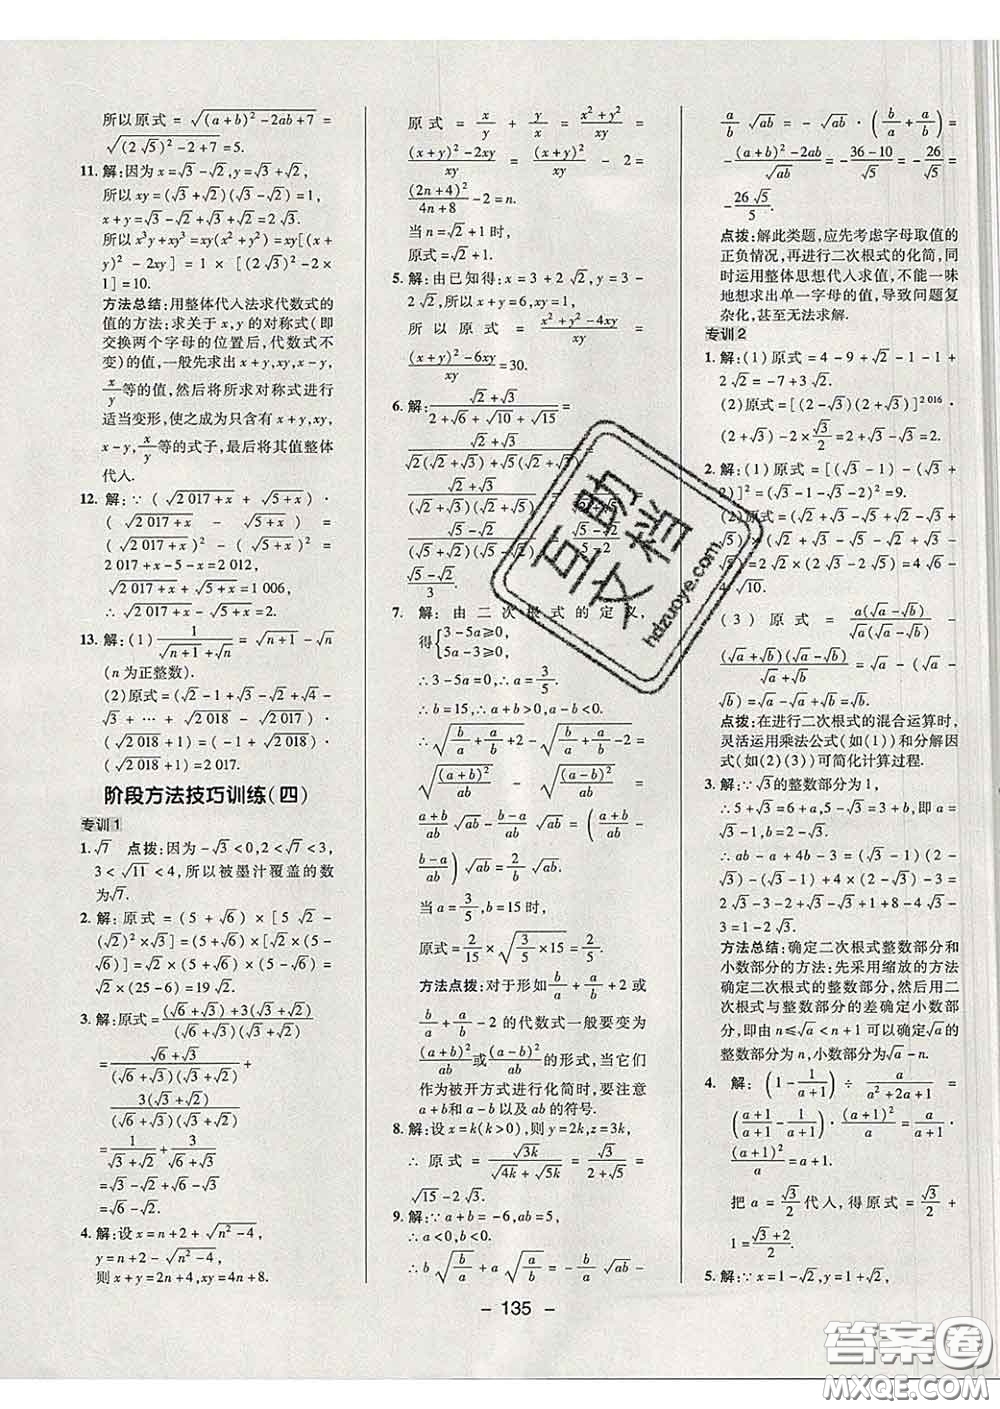 所以原式=√((a+b)²-2ab+7)=
√((2√5)²-2+7)=5.
11. 解:因为x=√3-√2,y=√3+√2,
所以xy=(√3+√2)(√3-√2)=1,
x+y=√3-√2+√3+√2=2√3.
所以x³y+xy³=xy(x²+y²)=xy[(x+
y)²-2xy]=1×[(2√3)²-2×
1]=10.
方法总结:用整体代入法求代数式的
值的方法:求关于x,y的对称式(即
交换两个字母的位置后,代数式不
变)的值,一般先求出x+y,xy,x-y,
x/y等的值,然后将所求对称式进行
适当变形,使之成为只含有x+y,xy,
x-y,x/y等的式子,最后将其值整体
代入.
12. 解:∵(√(2 017+x)+√(5+x))·
(√(2 017+x)-√(5+x))=
(√(2 017+x))²-(√(5+x))²=
2 017+x-5-x=2 012,
∴√(2 017+x)+√(5+x)=1 006,
∴√(2 017+x)-√(5+x)=2.
13. 解:(1)1/(√(n+1)+√n)=√(n+1)-√n
(n为正整数).
(2)原式=(√2-1+√3-√2+√4-
√3+…+√(2 018)-√(2 017))·
(√(2 018)+1)=(-1+√(2 018))·
(√(2 018)+1)=2 017.
阶段方法技巧训练(四)
专训1
1. √7 点拨:因为-√3<0,2<√7<3,
3<√11<4,所以被墨汁覆盖的数
为√7.
2. 解:原式=(5+√6)×[5√2-
(√2)²×√3]=(5+√6)×[√2×
(5-√2×√3)]=(5+√6)(5-√6)
×√2=√2×(25-6)=19√2.
3. 解:原式=((√6+√3)+3(√3+√2))/((√6+√3)(√3+√2))
=(√6+√3)/((√6+√3)(√3+√2))+
3(√3+√2)/((√6+√3)(√3+√2))
=1/(√3+√2)+3/(√6+√3)
=√3-√2+√6-√3
=√6-√2.
4. 解:设x=n+2+√(n²-4),
y=n+2-√(n²-4),
则x+y=2n+4,xy=4n+8.
原式=x/y+y/x=(x²+y²)/xy=
((x+y)²-2xy)/xy=(x+y)²/xy-2=
(2n+4)²/(4n+8)-2=n.
当n=√2+1时,
原式=√2+1.
5. 解:由已知得:x=3+2√2,y=3-
2√2,所以x+y=6,xy=1,
所以原式=(x²+y²-4xy)/xy=
((x+y)²-6xy)/xy=30.
6. 解:(√2+√3)/(2+√6+√10+√15)=
(√2+√3)/(√2(√2+√3)+√5(√2+√3))=
(√2+√3)/((√2+√3)(√2+√5))
(√5-√2)/((√5+√2)(√5-√2))
(√5-√2)/3.
7. 解:由二次根式的定义,
得{3-5a≥0,
5a-3≥0,
∴3-5a=0,∴a=3/5.
∴b=15,∴a+b>0,a-b<0.
∴√(b/a+a/b+2)-√(b/a+a/b-2)=
√((a+b)²/ab)-√((a-b)²/ab)=
(a+b)/ab√ab-(b-a)/ab√ab=((a+b)/ab-
(b-a)/ab)√ab=2/b√ab.
当a=3/5,b=15时,
原式=2/15×√(3/5×15)=2/5.
方法点拨:对于形如b/a+a/b+2或
b/a+a/b-2的代数式一般要变为
(a+b)²/ab或(a-b)²/ab的形式,当它们
作为被开方式进行化简时,要注意
a+b和a-b以及ab的符号.
8. 解:设x=k(k>0),则y=2k,z=3k,
∴原式=√3k/(√4k+√5k)=√3/(2+√5)=
√15-2√3.
9. 解:∵a+b=-6,ab=5,
∴a<0,b<0.
∴b√(b/a)+a√(a/b)=-b/a√ab-
a/b√ab=-√ab·(b/a+a/b)=
-((a+b)²-2ab)/√ab=-(36-10)/√5=-26/√5=
-26√5/5.
点拨:解此类题,应先考虑字母取值的
正负情况,再进行二次根式的化简,同
时运用整体思想代入求值,不能一味
地想求出单一字母的值,导致问题复
杂化,甚至无法求解.
专训2
1. 解:(1)原式=4-9+√2-1-1+
2√2=-7+3√2.
(2)原式=[(2-√3)(2+√3)]^2 016·
(2+√3)-2×√3/2=2+√3-√3=2.
2. 解:(1)原式=[(√3-1)-(√3-
4)]²=(√3-1-√3+4)²=9.
(2)原式=(√5+√3+√2+√5-√3-
√2)(√5+√3+√2-√5+√3+
√2)=2√5×(2√3+2√2)=
4√15+4√10.
(3)原式=a(√a-√b)/(√a(√a-√b))-
(√a+√b)(√a-√b)/(√a+√b)=√a-(√a-
√b)=√a-√a+√b=√b.
点拨:在进行二次根式的混合运算时,
灵活运用乘法公式(如(1))和分解因
式(如(2)(3))可简化计算过程.
3. 解:∵√3的整数部分为1,
∴5+√3=6+a,5-√3=3+b,即a=
-1+√3,b=2-√3.
∴ab-a+4b-3=(-1+√3)(2-
√3)-(-1+√3)+4×(2-√3)-3=
2√3-3-2+√3+1-√3+8-4√3-
3=1-2√3.
方法总结:确定二次根式整数部分和
小数部分的方法:先采用缩放的方法
确定二次根式的整数部分,然后用二
次根式与整数部分的差确定小数部
分,即由n≤√a<n+1可以确定√a的
整数部分为n,小数部分为√a-n.
4. 解:(1-1/(a+1))÷a/(a²+2a+1)=
((a+1)/(a+1)-1/(a+1))·(a+1)²/a=a/(a+1)·
(a+1)²/a=a+1.
把a=√3/2代入,得原式=√3/2+
1=(√3+2)/2.
5. 解:∵x=1-√2,y=1+√2,
- 135 -
互助
文档
hdzuoye.com
答案卷
MXQE.COM